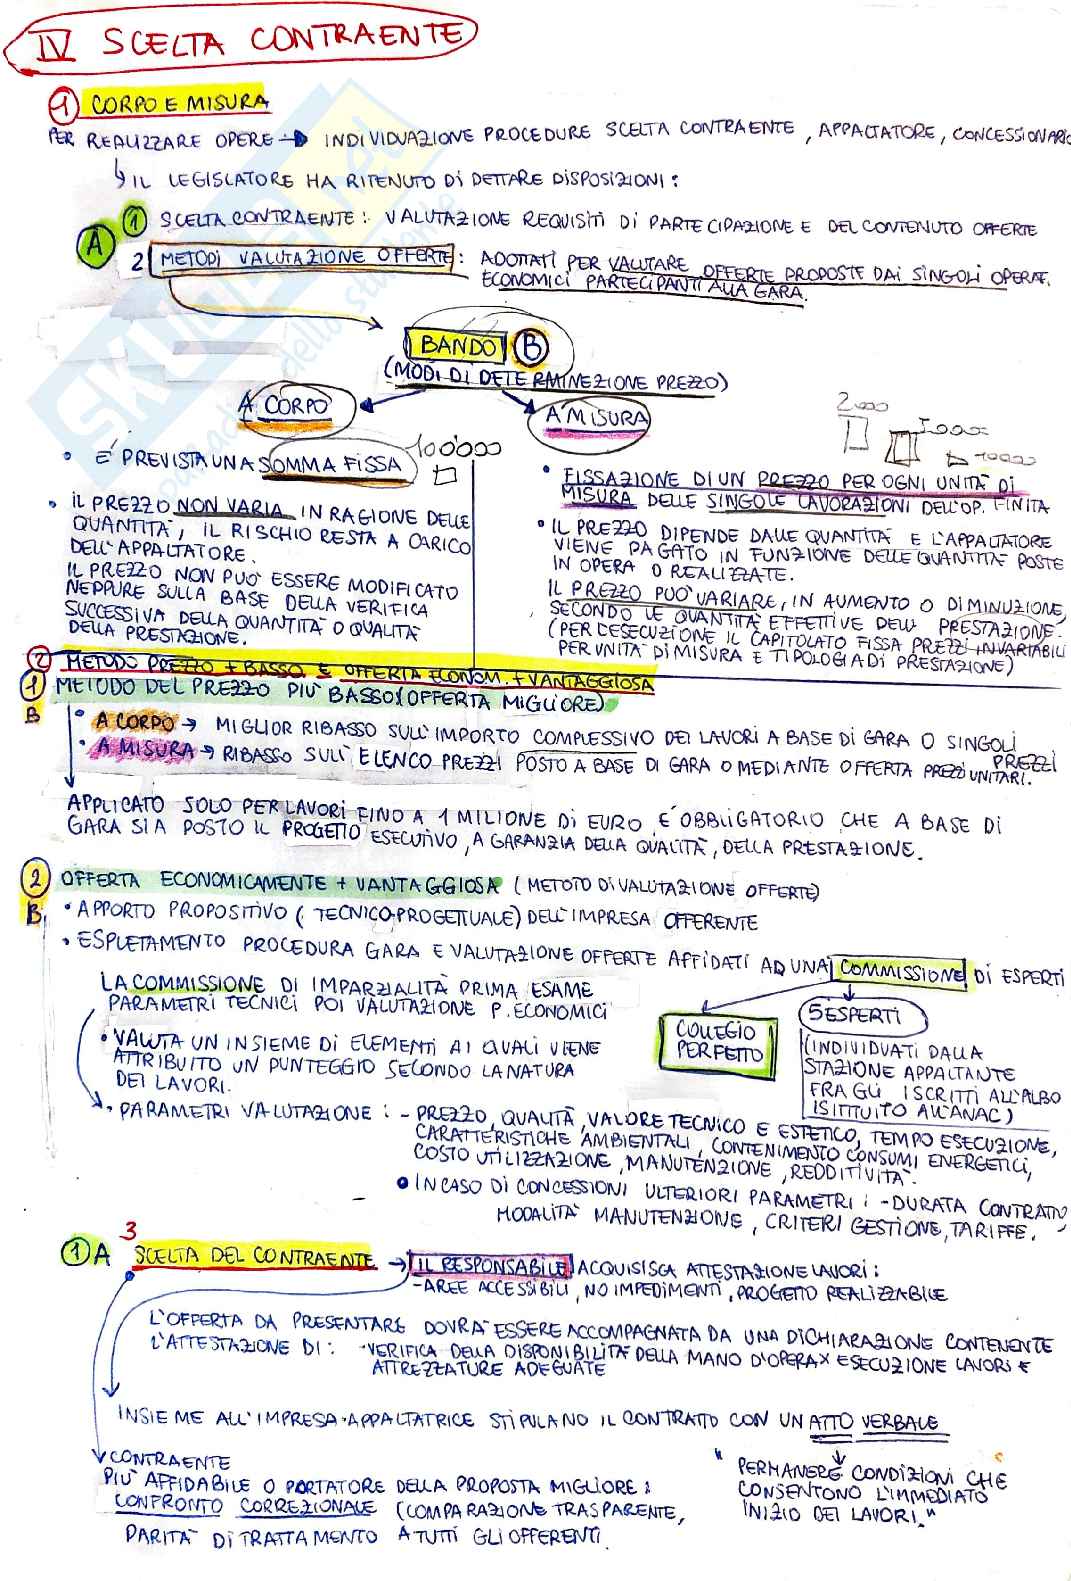 IV SCELTA CONTRAENTE
1 CORPO E MISURA
PER REALIZZARE OPERE → INDIVIDUAZIONE PROCEDURE SCELTA CONTRAENTE, APPALTATORE, CONCESSIONARIO
↳ IL LEGISLATORE HA RITENUTO DI DETTARE DISPOSIZIONI:
A 1 SCELTA CONTRAENTE: VALUTAZIONE REQUISITI DI PARTECIPAZIONE E DEL CONTENUTO OFFERTE
2 METODI VALUTAZIONE OFFERTE: ADOTTATI PER VALUTARE OFFERTE PROPOSTE DAI SINGOLI OPERAT.
ECONOMICI PARTECIPANTI ALLA GARA.
BANDO B
(MODI DI DETERMINEZIONE PREZZO)
A CORPO
A MISURA
100'000
2000
5000
10000
• E' PREVISTA UNA SOMMA FISSA
• IL PREZZO NON VARIA IN RAGIONE DELLE
QUANTITA', IL RISCHIO RESTA A CARICO
DELL'APPALTATORE.
IL PREZZO NON PUO' ESSERE MODIFICATO
NEPPURE SULLA BASE DELLA VERIFICA
SUCCESSIVA DELLA QUANTITA' O QUALITA'
DELLA PRESTAZIONE.
• FISSAZIONE DI UN PREZZO PER OGNI UNITA' DI
MISURA DELLE SINGOLE LAVORAZIONI DELL'OP. FINITA
• IL PREZZO DIPENDE DALLE QUANTITA' E L'APPALTATORE
VIENE PAGATO IN FUNZIONE DELLE QUANTITA' POSTE
IN OPERA O REALIZZATE.
IL PREZZO PUO' VARIARE, IN AUMENTO O DIMINUZIONE,
SECONDO LE QUANTITA' EFFETTIVE DELL' PRESTAZIONE.
(PER L'ESECUZIONE IL CAPITOLATO FISSA PREZZI INVARIABILI
PER UNITA' DI MISURA E TIPOLOGIA DI PRESTAZIONE)
2 METODO PREZZO + BASSO E OFFERTA ECONOM. + VANTAGGIOSA
1 METODO DEL PREZZO PIU' BASSO (OFFERTA MIGLIORE)
B • A CORPO → MIGLIOR RIBASSO SULL'IMPORTO COMPLESSIVO DEI LAVORI A BASE DI GARA O SINGOLI PREZZI
• A MISURA → RIBASSO SULL' ELENCO PREZZI POSTO A BASE DI GARA O MEDIANTE OFFERTA PREZZI UNITARI.
APPLICATO SOLO PER LAVORI FINO A 1 MILIONE DI EURO, E' OBBLIGATORIO CHE A BASE DI
GARA SIA POSTO IL PROGETTO ESECUTIVO, A GARANZIA DELLA QUALITA', DELLA PRESTAZIONE.
2 OFFERTA ECONOMICAMENTE + VANTAGGIOSA (METOTO DI VALUTAZIONE OFFERTE)
B • APPORTO PROPOSITIVO (TECNICO-PROGETTUALE) DELL'IMPRESA OFFERENTE
• ESPLETAMENTO PROCEDURA GARA E VALUTAZIONE OFFERTE AFFIDATI AD UNA COMMISSIONE DI ESPERTI
LA COMMISSIONE DI IMPARZIALITA' PRIMA ESAME
PARAMETRI TECNICI POI VALUTAZIONE P. ECONOMICI
COLLEGIO
PERFETTO
5 ESPERTI
(INDIVIDUATI DALLA
STAZIONE APPALTANTE
FRA GLI ISCRITTI ALL'ALBO
ISITTUITO ALL'ANAC)
• VALUTA UN INSIEME DI ELEMENTI AI QUALI VIENE
ATTRIBUITO UN PUNTEGGIO SECONDO LA NATURA
DEI LAVORI.
• PARAMETRI VALUTAZIONE: - PREZZO, QUALITA', VALORE TECNICO E ESTETICO, TEMPO ESECUZIONE,
CARATTERISTICHE AMBIENTALI, CONTENIMENTO CONSUMI ENERGETICI,
COSTO UTILIZZAZIONE, MANUTENZIONE, REDDITIVITA'.
• IN CASO DI CONCESSIONI ULTERIORI PARAMETRI: - DURATA CONTRATTO
MODALITA' MANUTENZIONE, CRITERI GESTIONE, TARIFFE.
1 A 3 SCELTA DEL CONTRAENTE → IL RESPONSABILE ACQUISISCA ATTESTAZIONE LAVORI:
- AREE ACCESSIBILI, NO IMPEDIMENTI, PROGETTO REALIZZABILE
L'OFFERTA DA PRESENTARE DOVRA' ESSERE ACCOMPAGNATA DA UNA DICHIARAZIONE CONTENENTE
L'ATTESTAZIONE DI: - VERIFICA DELLA DISPONIBILITA' DELLA MANO D'OPERA X ESECUZIONE LAVORI E
ATTREZZATURE ADEGUATE
INSIEME ALL'IMPRESA APPALTATRICE STIPULANO IL CONTRATTO CON UN ATTO VERBALE
CONTRAENTE
PIU' AFFIDABILE O PORTATORE DELLA PROPOSTA MIGLIORE:
CONFRONTO CORREZIONALE (COMPARAZIONE TRASPARENTE,
PARITA' DI TRATTAMENTO A TUTTI GLI OFFERENTI.
"PERMANERE CONDIZIONI CHE
CONSENTONO L'IMMEDIATO
INIZIO DEI LAVORI."